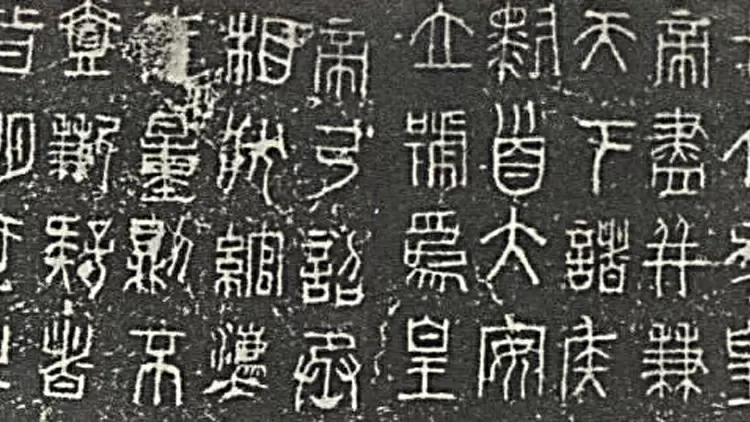 帝盡并兼
天下諸侯
黔首大安
立號為皇
帝乃詔丞
相狀綰灋
量則不
壹歉疑者